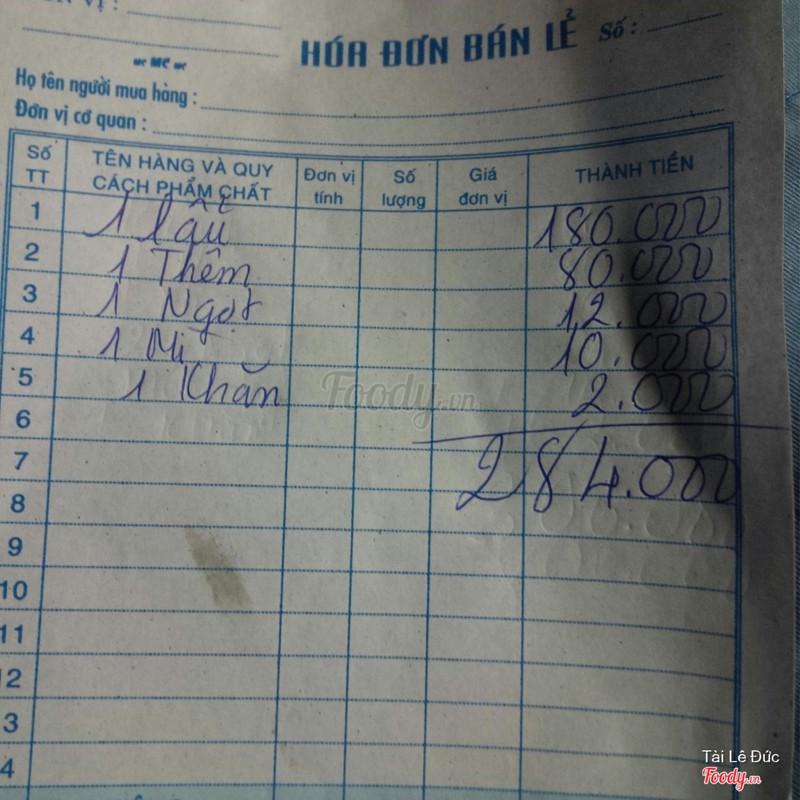 HÓA ĐƠN BÁN LẺ Số :
MC
Họ tên người mua hàng :
Đơn vị cơ quan :
Số TT TÊN HÀNG VÀ QUY CÁCH PHẨM CHẤT Đơn vị tính Số lượng Giá đơn vị THÀNH TIỀN
1 1 Lẩu 180.000
2 1 Thêm 80.000
3 1 Ngọt 12.000
4 1 Mì 10.000
5 1 Khăn 2.000
6
7 284.000
8
9
10
11
12
3
4
Foody.vn
Tài Lê Đức
Foody.vn